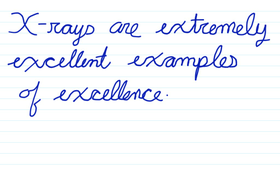 X-rays are extremely
excellent examples
of excellence.